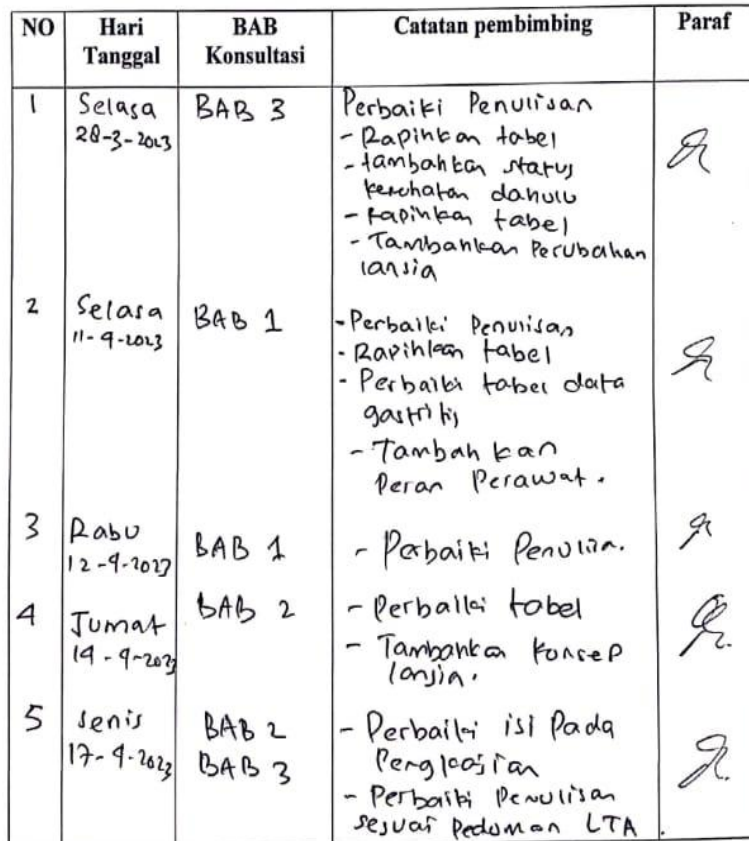 NO Hari Tanggal BAB Konsultasi Catatan pembimbing Paraf
1 Selasa BAB 3 Perbaiki Penulisan
28-3-2023 - Rapihkan tabel
- tambahkan status
kesehatan dahulu
- Rapihkan tabel
- Tambahkan Perubahan
lansia
2 Selasa BAB 1 - Perbaiki Penulisan
11-4-2023 - Rapihkan tabel
- Perbaiki tabel data
gastritis
- Tambahkan
Peran Perawat.
3 Rabu BAB 1 - Perbaiki Penulisan.
12-4-2023
4 Jumat BAB 2 - Perbaiki tabel
14-4-2023 - Tambahkan Konsep
lansia.
5 Senin BAB 2 - Perbaiki isi Pada
17-4-2023 BAB 3 Pengkajian
- Perbaiki Penulisan
sesuai Pedoman LTA.